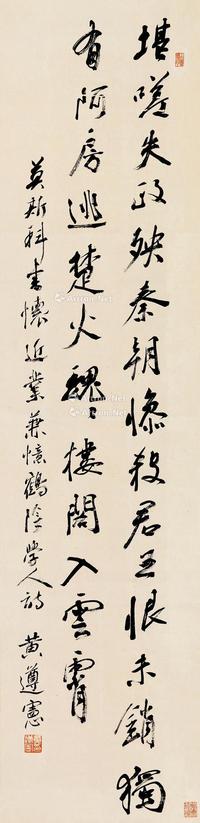 堪嗟失政殃秦朝惨殺君王恨未銷獨
有阿房逃楚火巍樓閣入雲霄
莫斯科書懷近業兼憶鶴陰學人詩 黃遵憲